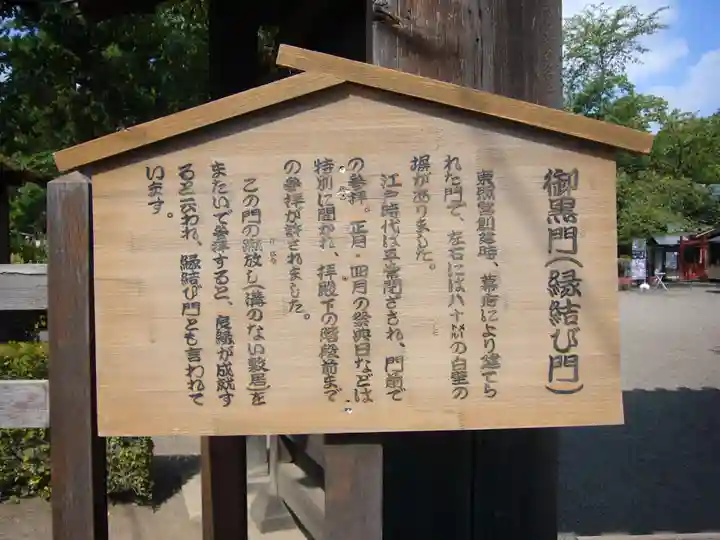 御黒門(縁結び門)
東照宮創建時、幕府により建てら
れた門で、左右には八十余の白壁の
塀がありました。
江戸時代は平常閉ざされ、門前で
の参拝。正月・四月の祭典日などは
特別に開かれ、拝殿下の階段前まで
の参拝が許されました。
この門の蹴放し(溝のない敷居)を
またいで参拝すると、良縁が成就す
ると云われ、縁結び門とも言われて
います。